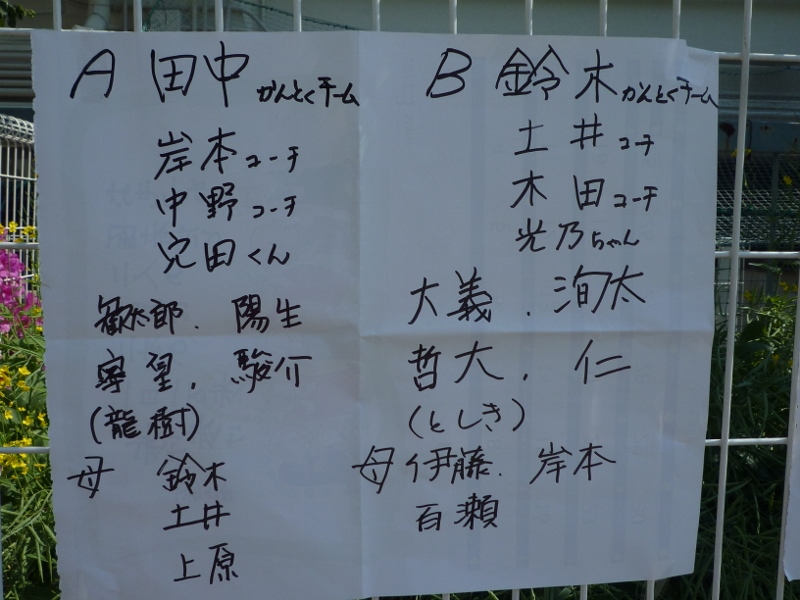 A 田中かんとくチーム
岸本コーチ
中野コーチ
穴田くん
歓太郎、陽生
寧望、駿介
(龍樹)
母 鈴木
土井
上原
B 鈴木かんとくチーム
土井コーチ
木田コーチ
光乃ちゃん
大義、洵太
哲大、仁
(としき)
母 伊藤、岸本
百瀬